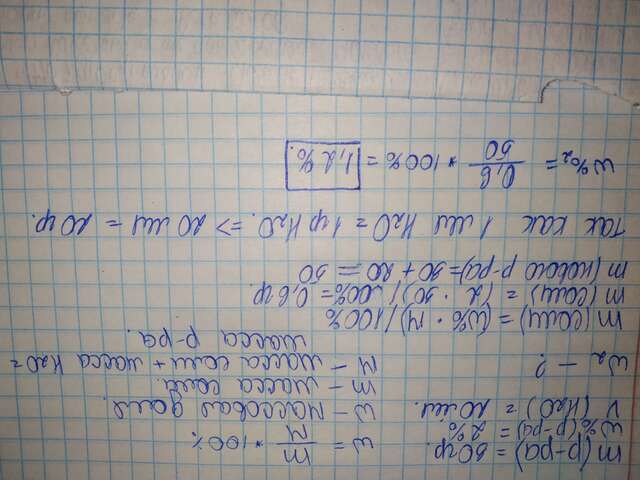 m(р-ра) = 30гр.
w%(р-ра) = 2%
V (H2O) = 20мл.
w2 — ?
w = m/M * 100%
w — массовая доля.
m — масса соли.
M — масса соли + масса H2O =
масса р-ра.
m(соли) = (w% · M) / 100%
m(соли) = (2 · 30) / 100% = 0,6гр.
m(нового р-ра) = 30 + 20 = 50
Так как 1 мл H2O = 1 гр H2O. => 20 мл = 20 гр.
w%2 = 0,6/50 * 100% = 1,2%.